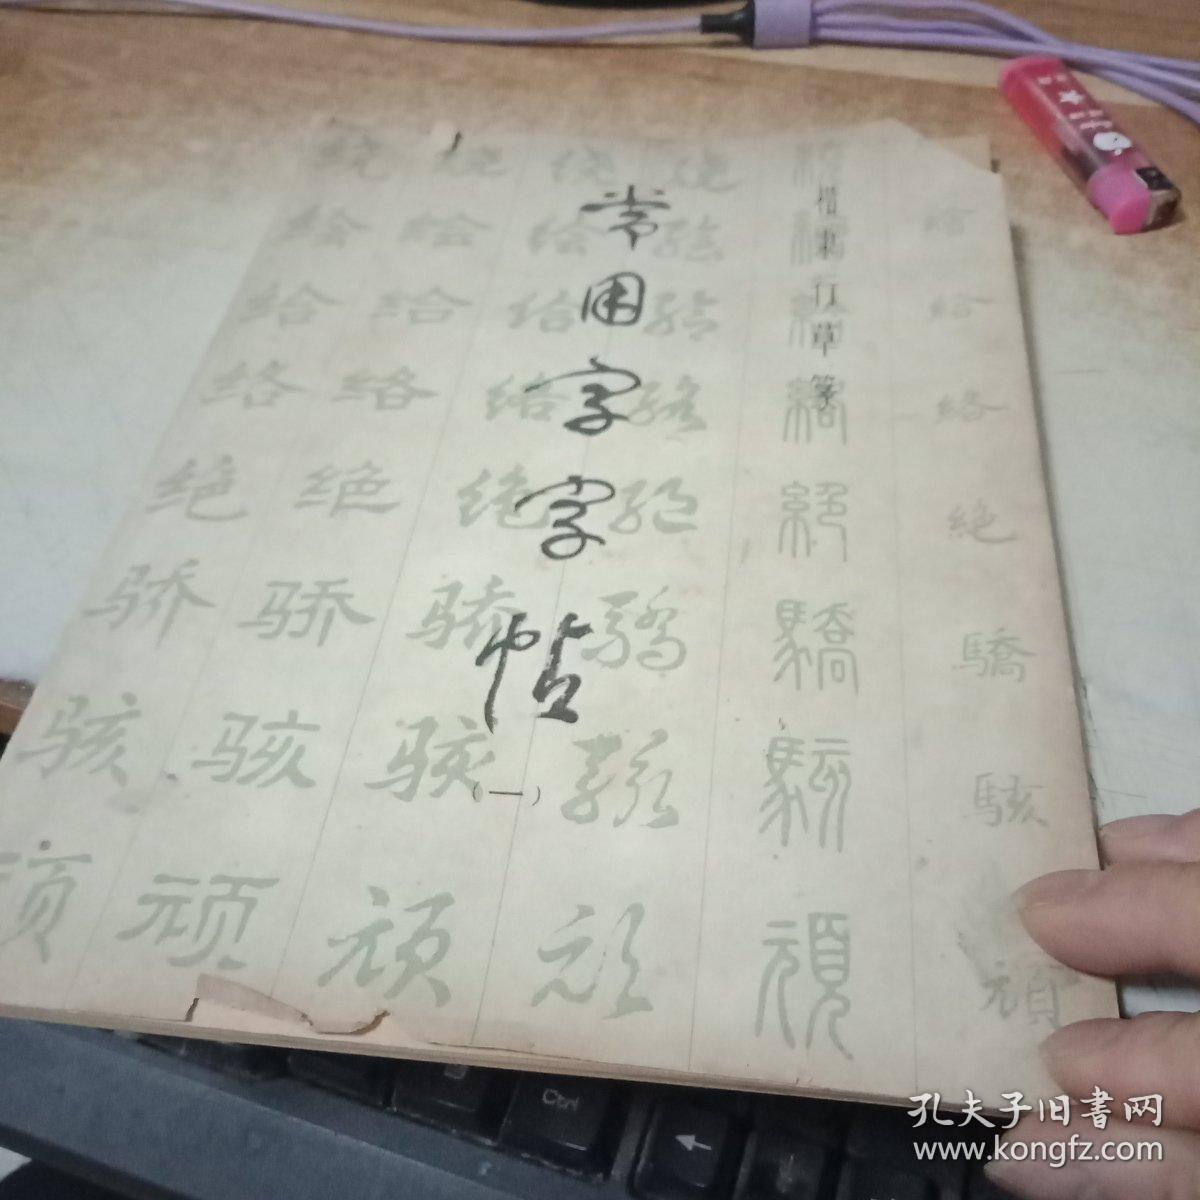 楷隶行草篆
常用字字帖
(一)
绕 绕 绕 绕 繞
绘 绘 绘 绘 繪 繪
给 给 给 给 給 給
络 络 络 络 絡 絡
绝 绝 绝 绝 絕 絕
骄 骄 骄 驕 驕 驕
骇 骇 骇 骇 駭 駭
顽 顽 顽 顽 頑 頑
Ctrl
孔夫子旧書网
www.kongfz.com